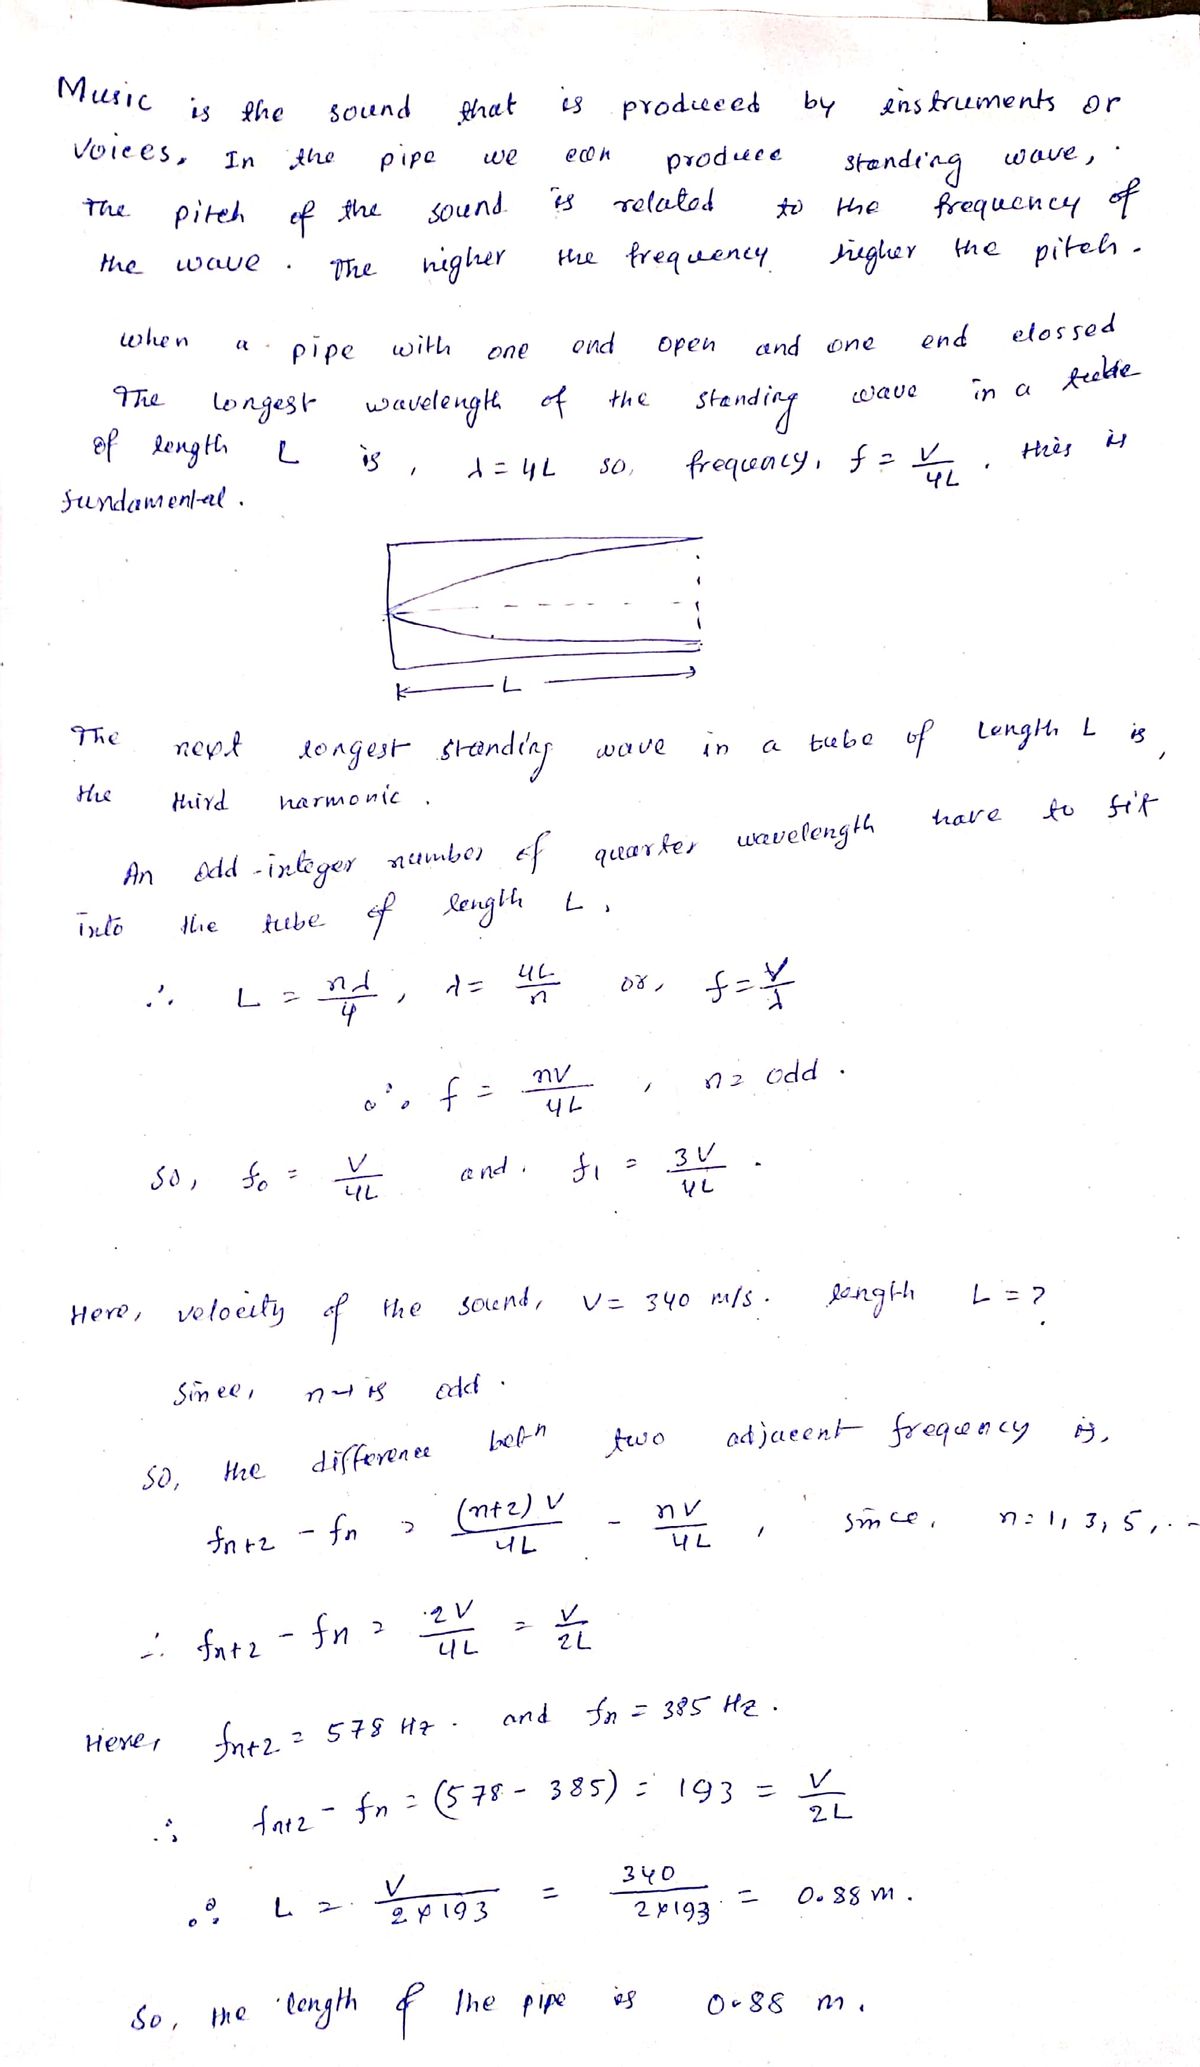 Music is the sound that is produced by instruments or
voices. In the pipe we can produce standing wave,
The pitch of the sound is related to the frequency of
the wave. The higher the frequency higher the pitch.
when a pipe with one end open and one end clossed
The longest wavelength of the standing wave in a tube
of length L is, λ = 4L so, frequency, f = V/4L. this is
fundamental.
L
The next longest standing wave in a tube of length L is,
the third harmonic.
An odd-integer number of quarter wavelength have to fit
into the tube of length L,
∴ L = nλ/4, λ = 4L/n or, f = V/λ
∴ f = nV/4L, n = odd.
so, f₀ = V/4L and. f₁ = 3V/4L.
Here, velocity of the sound, V = 340 m/s. length L = ?
Since, n → is odd.
so, the difference betn two adjacent frequency is,
fn+2 - fn = (n+2)V/4L - nV/4L, since, n = 1, 3, 5, ...
∴ fn+2 - fn = 2V/4L = V/2L
Here, fn+2 = 578 Hz. and fn = 385 Hz.
∴ fn+2 - fn = (578 - 385) = 193 = V/2L
∴ L = V/2×193 = 340/2×193 = 0.88 m.
So, the length of the pipe is 0.88 m.